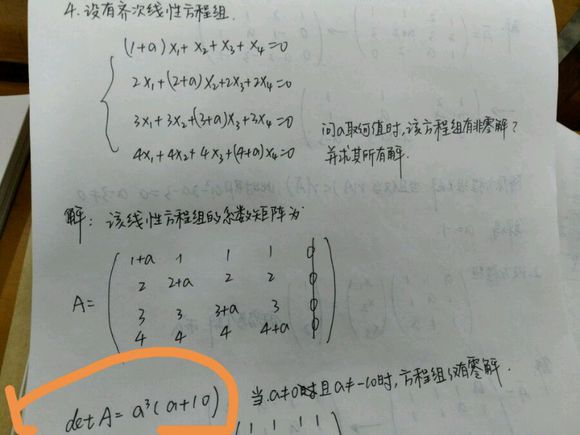 4. 设有齐次线性方程组.
(1+a)x₁+x₂+x₃+x₄=0
2x₁+(2+a)x₂+2x₃+2x₄=0
3x₁+3x₂+(3+a)x₃+3x₄=0
4x₁+4x₂+4x₃+(4+a)x₄=0
问a取何值时,该方程组有非零解?
并求其所有解.
解: 该线性方程组的系数矩阵为
1+a 1 1 1 0
2 2+a 2 2 0
A= 3 3 3+a 3 0
4 4 4 4+a 0
detA=a³(a+10) 当a≠0时且a≠-10时,方程组仅有零解.
1 1 1 1